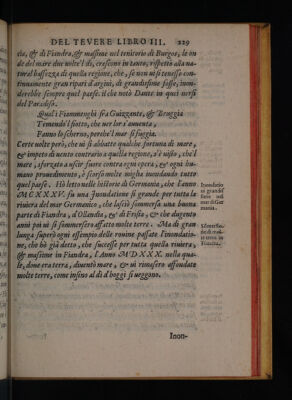 DEL TEVERE LIBRO III. 229
cia, & di Fiandra, & massime nel territorio di Burges, le on
de del mare due volte'l dì, crescono in tanto, rispetto alla na-
tural bassezza di quella regione, che, se non vi si tenesse con-
tinuamente gran ripari d'argini, di grandissime fosse, inon-
derebbe sempre quel paese. il che notò Dante in quei versi
del Paradiso.
Quali i Fiammenghi fra Guizzante, & Bruggia
Temendo'l fiotto, che ver lor s'auuenta,
Fanno lo schermo, perche'l mar si fuggia.
Certe volte però, che vi si abbatte qualche fortuna di mare,
& impeto di uento contrario a quella regione, s'è uisto, che'l
mare, sforzato a uscir fuore contra ogni opera, & ogni hu-
mano prouedimento, è scorso molte miglia inondando tutto
quel paese. Hò letto nelle historie di Germania, che l'anno
M C X X X V. fu una Inondatione sì grande per tutta la
riuiera del mar Germanico, che lasciò sommersa una buona
parte di Fiandra, d'Ollandia, & di Frisia, & che dugento
anni poi ui si sommersero affatto molte terre. Ma di gran
lunga superò ogni essempio delle rouine passate l'inondatio-
ne, che hò già detto, che successe per tutta quella riuiera,
& massime in Fiandra, l'Anno M D X X X. nella qua-
le, doue era terra, diuentò mare, & ui rimasero affondate
molte terre, come insino al dì d'hoggi si ueggono.
Inondatio
ni grandis
sime nel
mar di Ger
mania.
Sommersio-
ne di mol-
te terre in
Fiandra.
Inon-